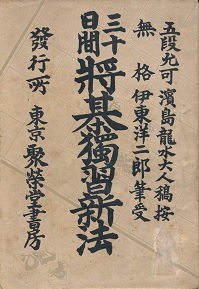 五段允可 濱島龍水大人稿按
無格 伊東洋二郎筆受
三十日間 將棊獨習新法
發行所 東京 聚榮堂書房